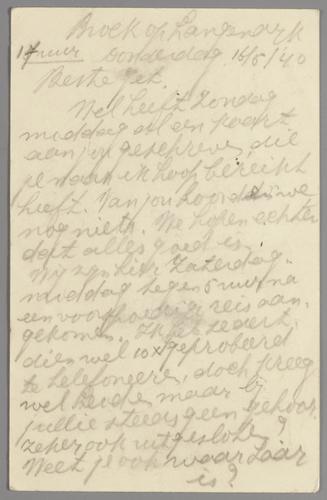 Broek op Langendijk
17 uur Donderdag 16/5/'40
Beste Jet.
Nel heeft Zondag
middag al een kaart
aan jou geschreven, die
je naar ik hoop bereikt
heeft. Van jou hoorden we
nog niets. We hopen echter
dat alles goed is.
Wij zijn hier Zaterdag-
middag tegen 5 uur na
een voorspoedige reis aan-
gekomen. Ik heb zedert-
dien wel 10 x geprobeerd
te telefoneeren, doch kreeg
wel Leiden maar bij
jullie steeds geen gehoor
zeker ook uitgesloten?
Weet je ook waar Jaar
is?